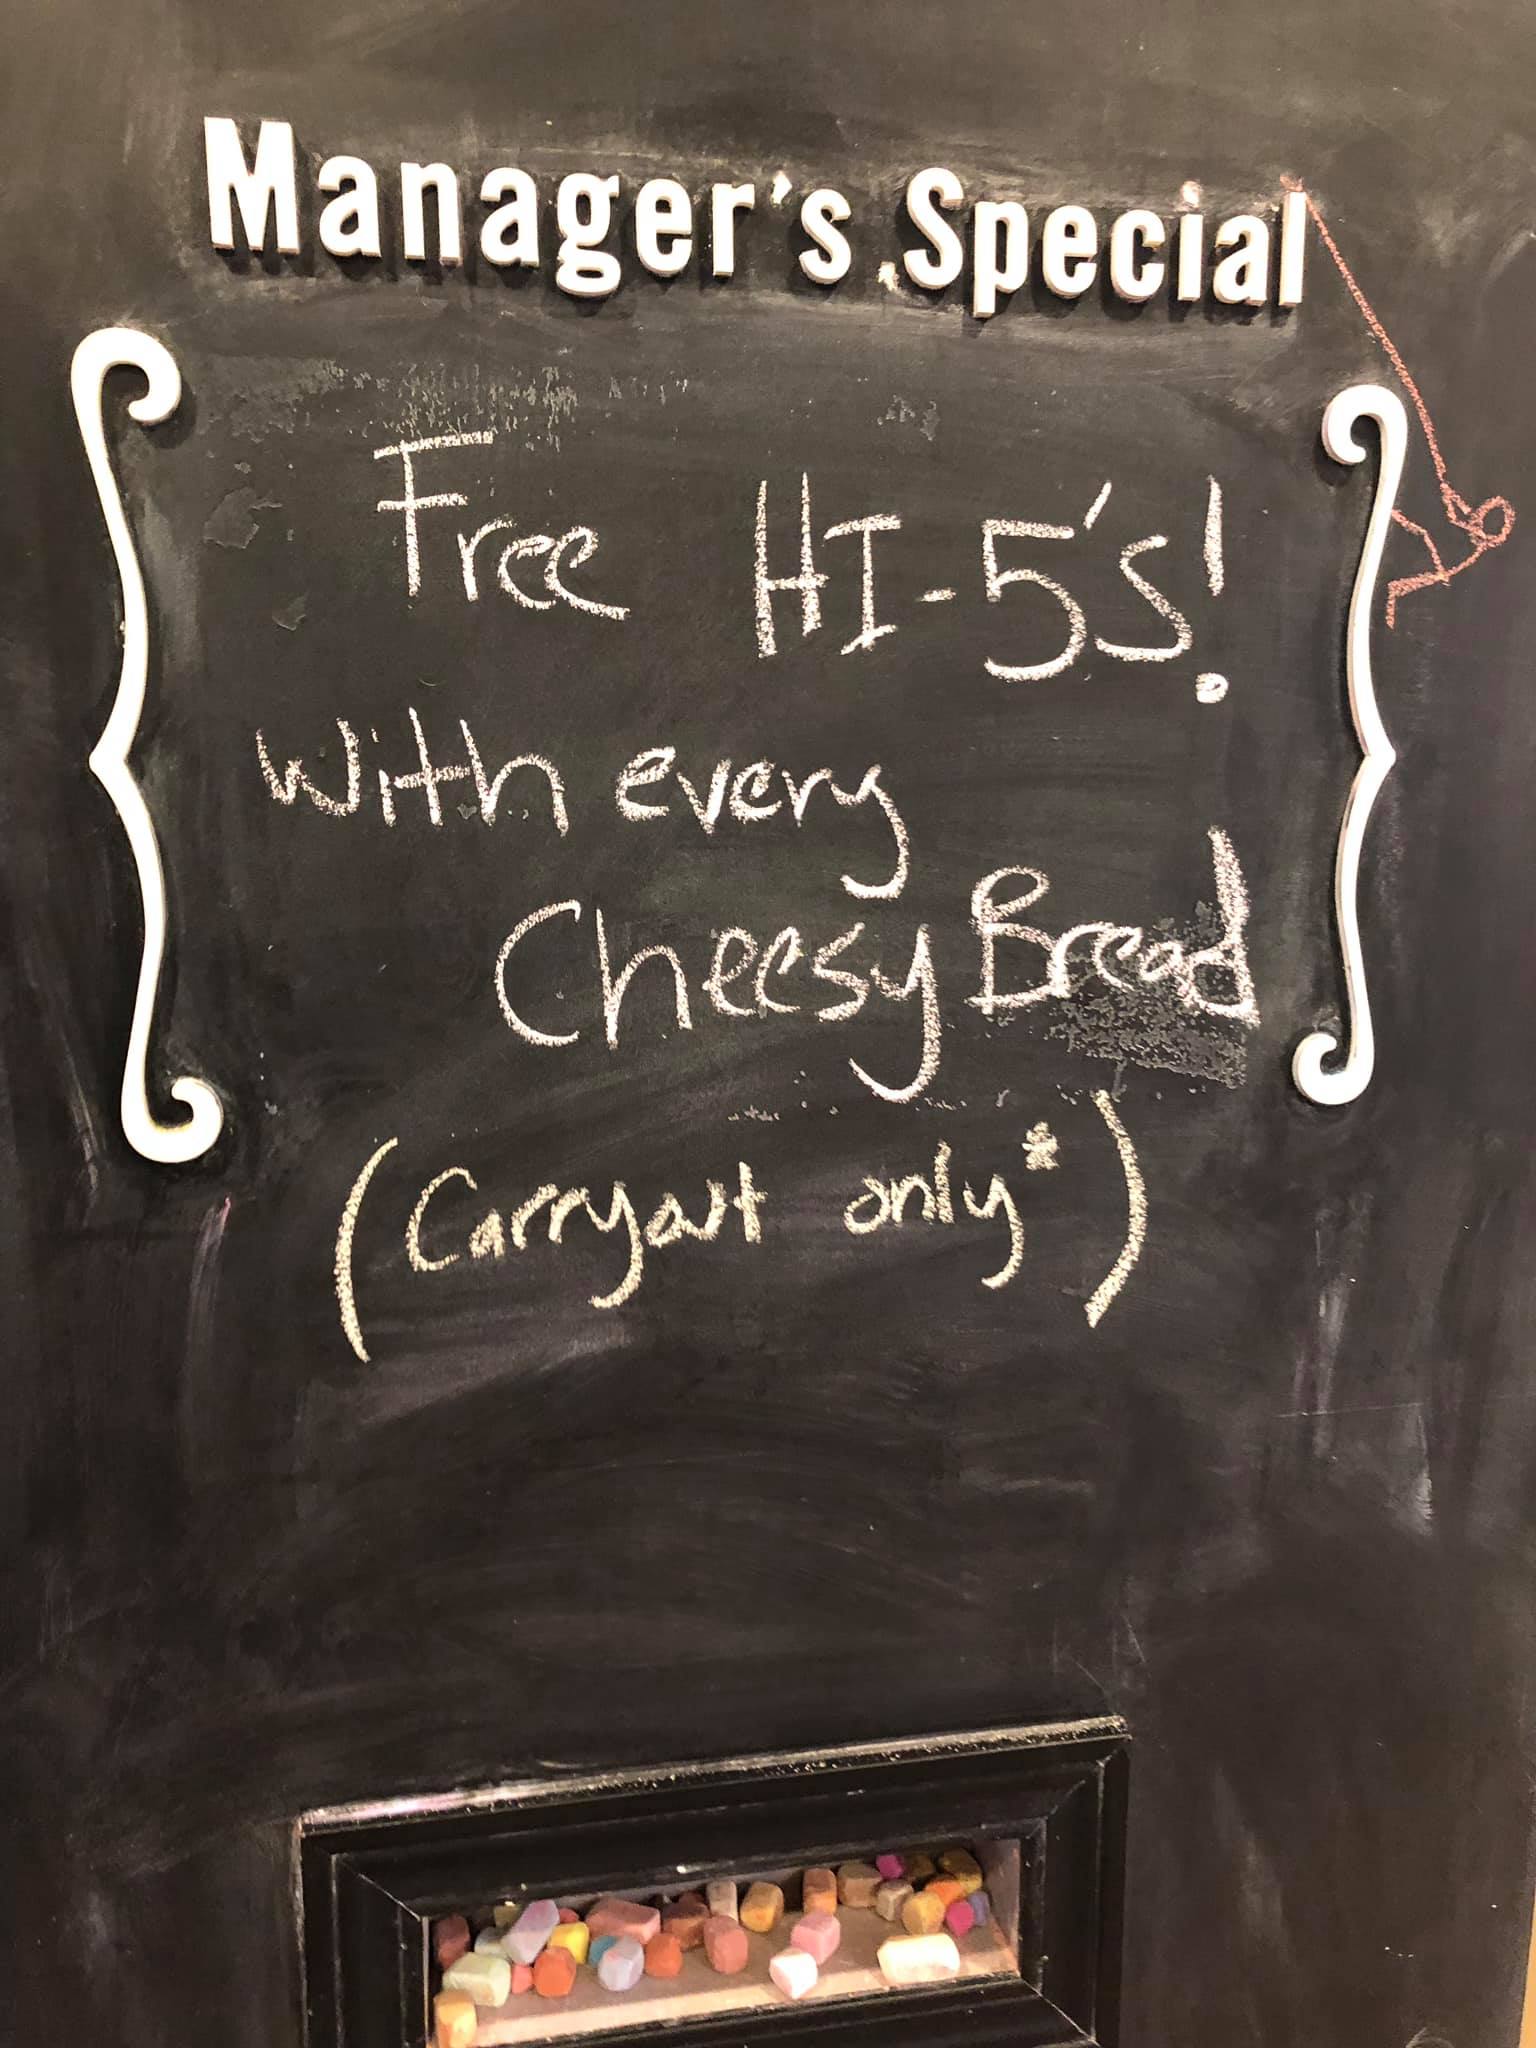 Manager's Special
Free HI-5's!
With every
Cheesy Bread
(Carryout only*)